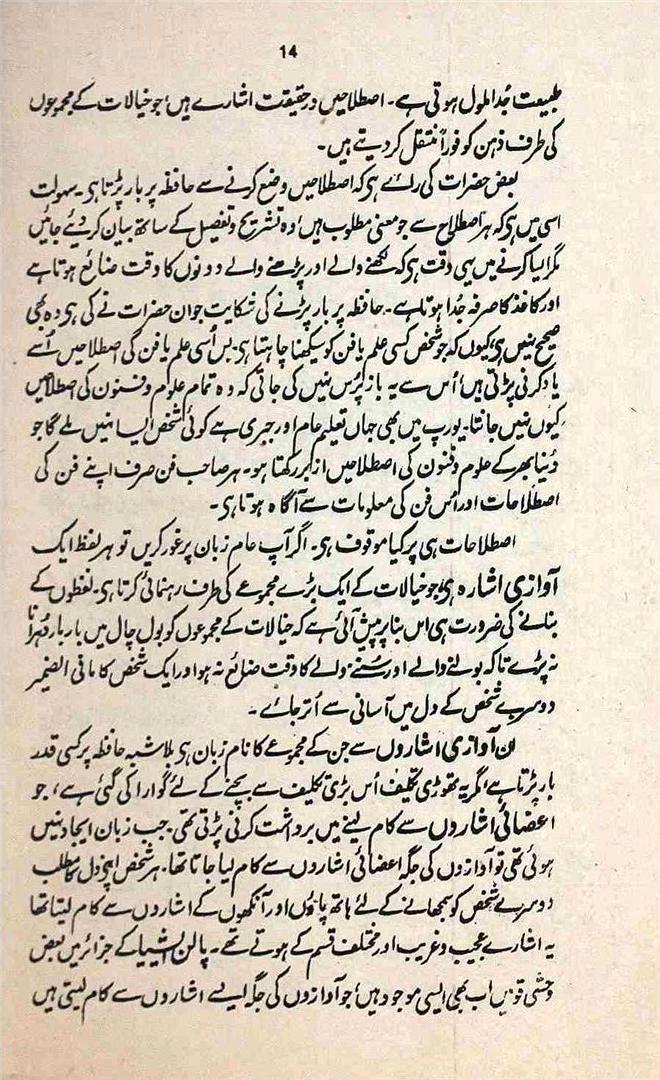 14
طبیعت جُدا ملول ہوتی ہے۔ اصطلاحیں درحقیقت اشارے ہیں؛ جو خیالات کے مجموعوں
کی طرف ذہن کو فوراً منتقل کر دیتے ہیں۔
بعض حضرات کی رائے ہی کہ اصطلاحیں وضع کرنے سے حافظہ پر بار پڑتا ہی۔ سہولت
اسی میں ہی کہ ہر اصطلاح سے جو معنی مطلوب ہیں؛ وہ تشریح و تفصیل کے ساتھ بیان کر دیے جائیں
مگر ایسا کرنے میں یہی دقت ہی کہ لکھنے والے اور پڑھنے والے دونوں کا وقت ضائع ہوتا ہے
اور کاغذ کا صرفہ جُدا ہوتا ہے۔ حافظہ پر بار پڑنے کی شکایت جو ان حضرات نے کی ہی وہ بھی
صحیح نہیں ہی؛ کیوں کہ جو شخص کسی علم یا فن کو سیکھنا چاہتا ہی۔ بس اُسی علم یا فن کی اصطلاحیں اُسے
یاد کرنی پڑتی ہیں؛ اُس سے یہ باز پُرس نہیں کی جاتی کہ وہ تمام علوم و فنون کی اصطلاحیں
کیوں نہیں جانتا۔ یورپ میں بھی جہاں تعلیم عام اور جبری ہے کوئی شخص ایسا نہیں ملے گا جو
دُنیا بھر کے علوم و فنون کی اصطلاحیں ازبر رکھتا ہو۔ ہر صاحب فن صرف اپنے فن کی
اصطلاحات اور اُس فن کی معلومات سے آگاہ ہوتا ہی۔
اصطلاحات ہی پر کیا موقوف ہی۔ اگر آپ عام زبان پر غور کریں تو ہر لفظ ایک
آوازی اشارہ ہی؛ جو خیالات کے ایک بڑے مجموعے کی طرف رہنمائی کرتا ہی۔ لفظوں کے
بنانے کی ضرورت ہی اس بنا پر پیش آئی ہے کہ خیالات کے مجموعوں کو بول چال میں بار بار دُہرانا
نہ پڑے تاکہ بولنے والے اور سننے والے کا وقت ضائع نہ ہو اور ایک شخص کا مافی الضمیر
دوسرے شخص کے دل میں آسانی سے اُتر جائے۔
ان آوازی اشاروں سے جن کے مجموعے کا نام زبان ہی بلاشبہ حافظہ پر کسی قدر
بار پڑتا ہے، مگر یہ تھوڑی تکلیف اُس بڑی تکلیف سے بچنے کے لئے گوارا کی گئی ہے، جو
اعضائی اشاروں سے کام لینے میں برداشت کرنی پڑتی تھی۔ جب زبان ایجاد نہیں
ہوئی تھی تو آوازوں کی جگہ اعضائی اشاروں سے کام لیا جاتا تھا۔ ہر شخص اپنے دل کا مطلب
دوسرے شخص کو سمجھانے کے لئے ہاتھ پاؤں اور آنکھوں کے اشاروں سے کام لیتا تھا
یہ اشارے عجیب و غریب اور مختلف قسم کے ہوتے تھے۔ پالن ایشیا کے جزائر میں بعض
وحشی قومیں اب بھی ایسی موجود ہیں؛ جو آوازوں کی جگہ ایسے اشاروں سے کام لیتی ہیں